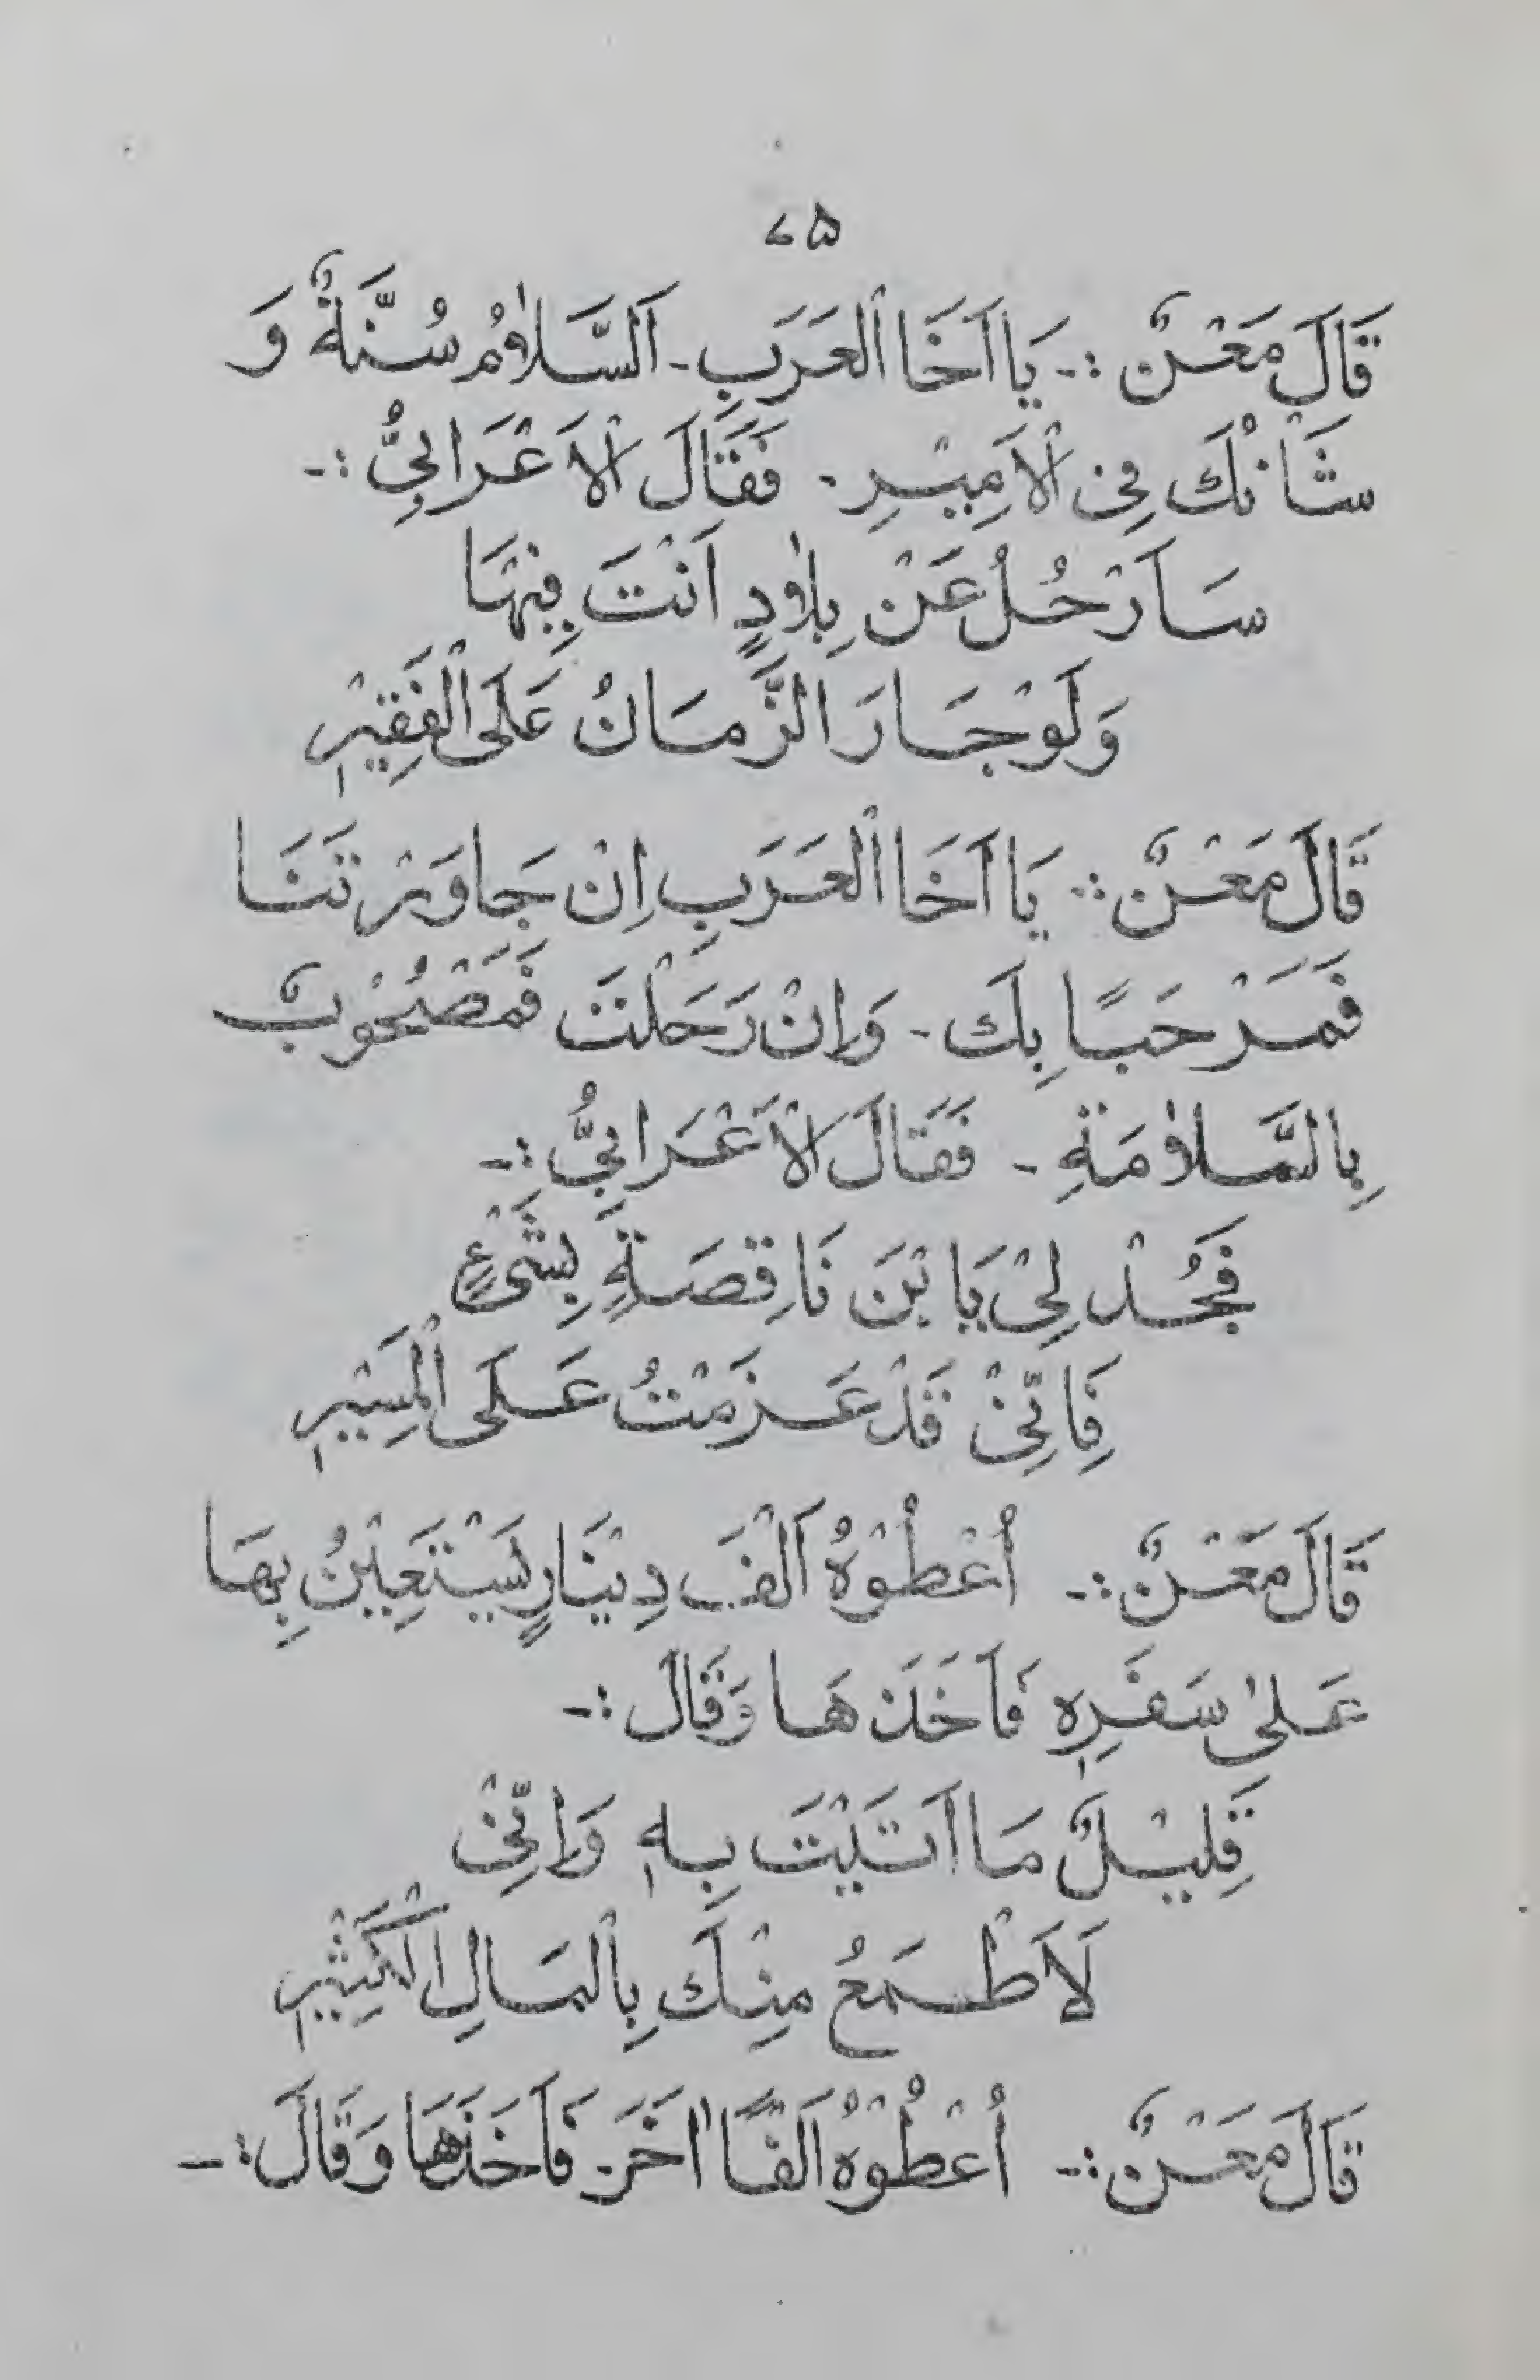 ۷۵
قَالَ مَعْنٌ :- يَا اَخَا الْعَرَبِ - اَلسَّلَامُ سُنَّةٌ وَ
شَأْنُكَ فِى الْاَمِيْرِ - فَقَالَ الْاَعْرَابِىُّ :-
سَاَرْحُلُ عَنْ بِلَادٍ اَنْتَ فِيْهَا
وَلَوْ جَارَ الزَّمَانُ عَلَى الْفَقِيْرِ
قَالَ مَعْنٌ :- يَا اَخَا الْعَرَبِ اِنْ جَاوَرْتَنَا
فَمَرْحَبًا بِكَ - وَاِنْ رَحَلْتَ فَمَصْحُوْبٌ
بِالسَّلَامَةِ - فَقَالَ الْاَعْرَابِىُّ :-
فَجُدْ لِىْ يَا بْنَ نَاقِصَةٍ بِشَىْءٍ
فَاِنِّىْ قَدْ عَزَمْتُ عَلَى الْمَسِيْرِ
قَالَ مَعْنٌ :- اُعْطُوْهُ اَلْفَ دِيْنَارٍ يَسْتَعِيْنُ بِهَا
عَلىٰ سَفَرِهٖ فَاَخَذَهَا وَقَالَ :-
قَلِيْلٌ مَا اَتَيْتَ بِهٖ وَاِنِّىْ
لَاَطْمَعُ مِنْكَ بِالْمَالِ الْكَثِيْرِ
قَالَ مَعْنٌ :- اُعْطُوْهُ اَلْفًا اٰخَرَ فَاَخَذَهَا وَقَالَ :-